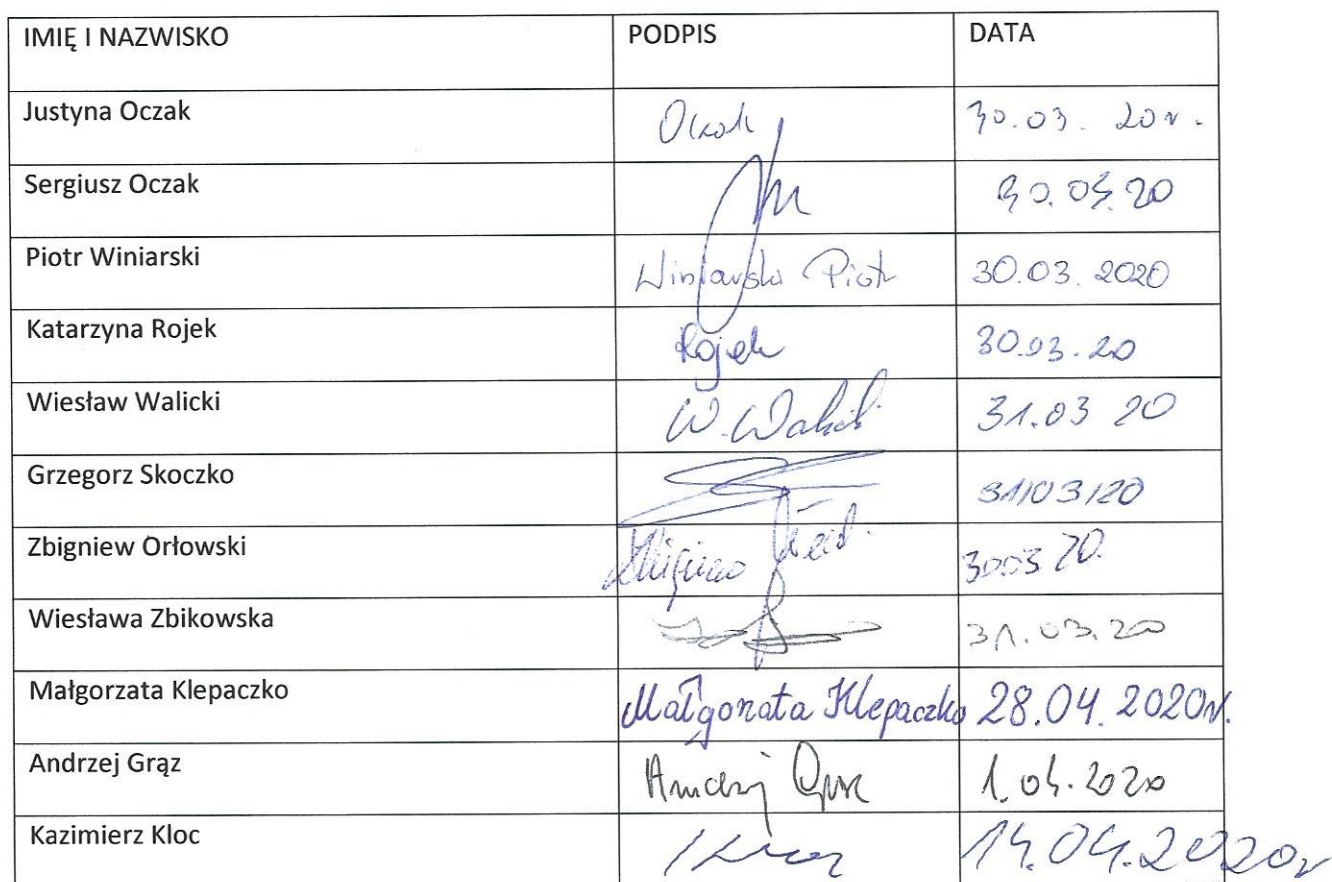 IMIĘ I NAZWISKO PODPIS DATA
Justyna Oczak Oczak 30.03. 20r.
Sergiusz Oczak 30.03.20
Piotr Winiarski Winiarski Piotr 30.03.2020
Katarzyna Rojek Rojek 30.03.20
Wiesław Walicki W. Walicki 31.03 20
Grzegorz Skoczko 31/03/20
Zbigniew Orłowski Zbigniew 3003 20.
Wiesława Zbikowska 31.03.20
Małgorzata Klepaczko Małgorzata Klepaczko 28.04.2020r.
Andrzej Grąz Andrzej 1.04.2020
Kazimierz Kloc 14.04.2020r